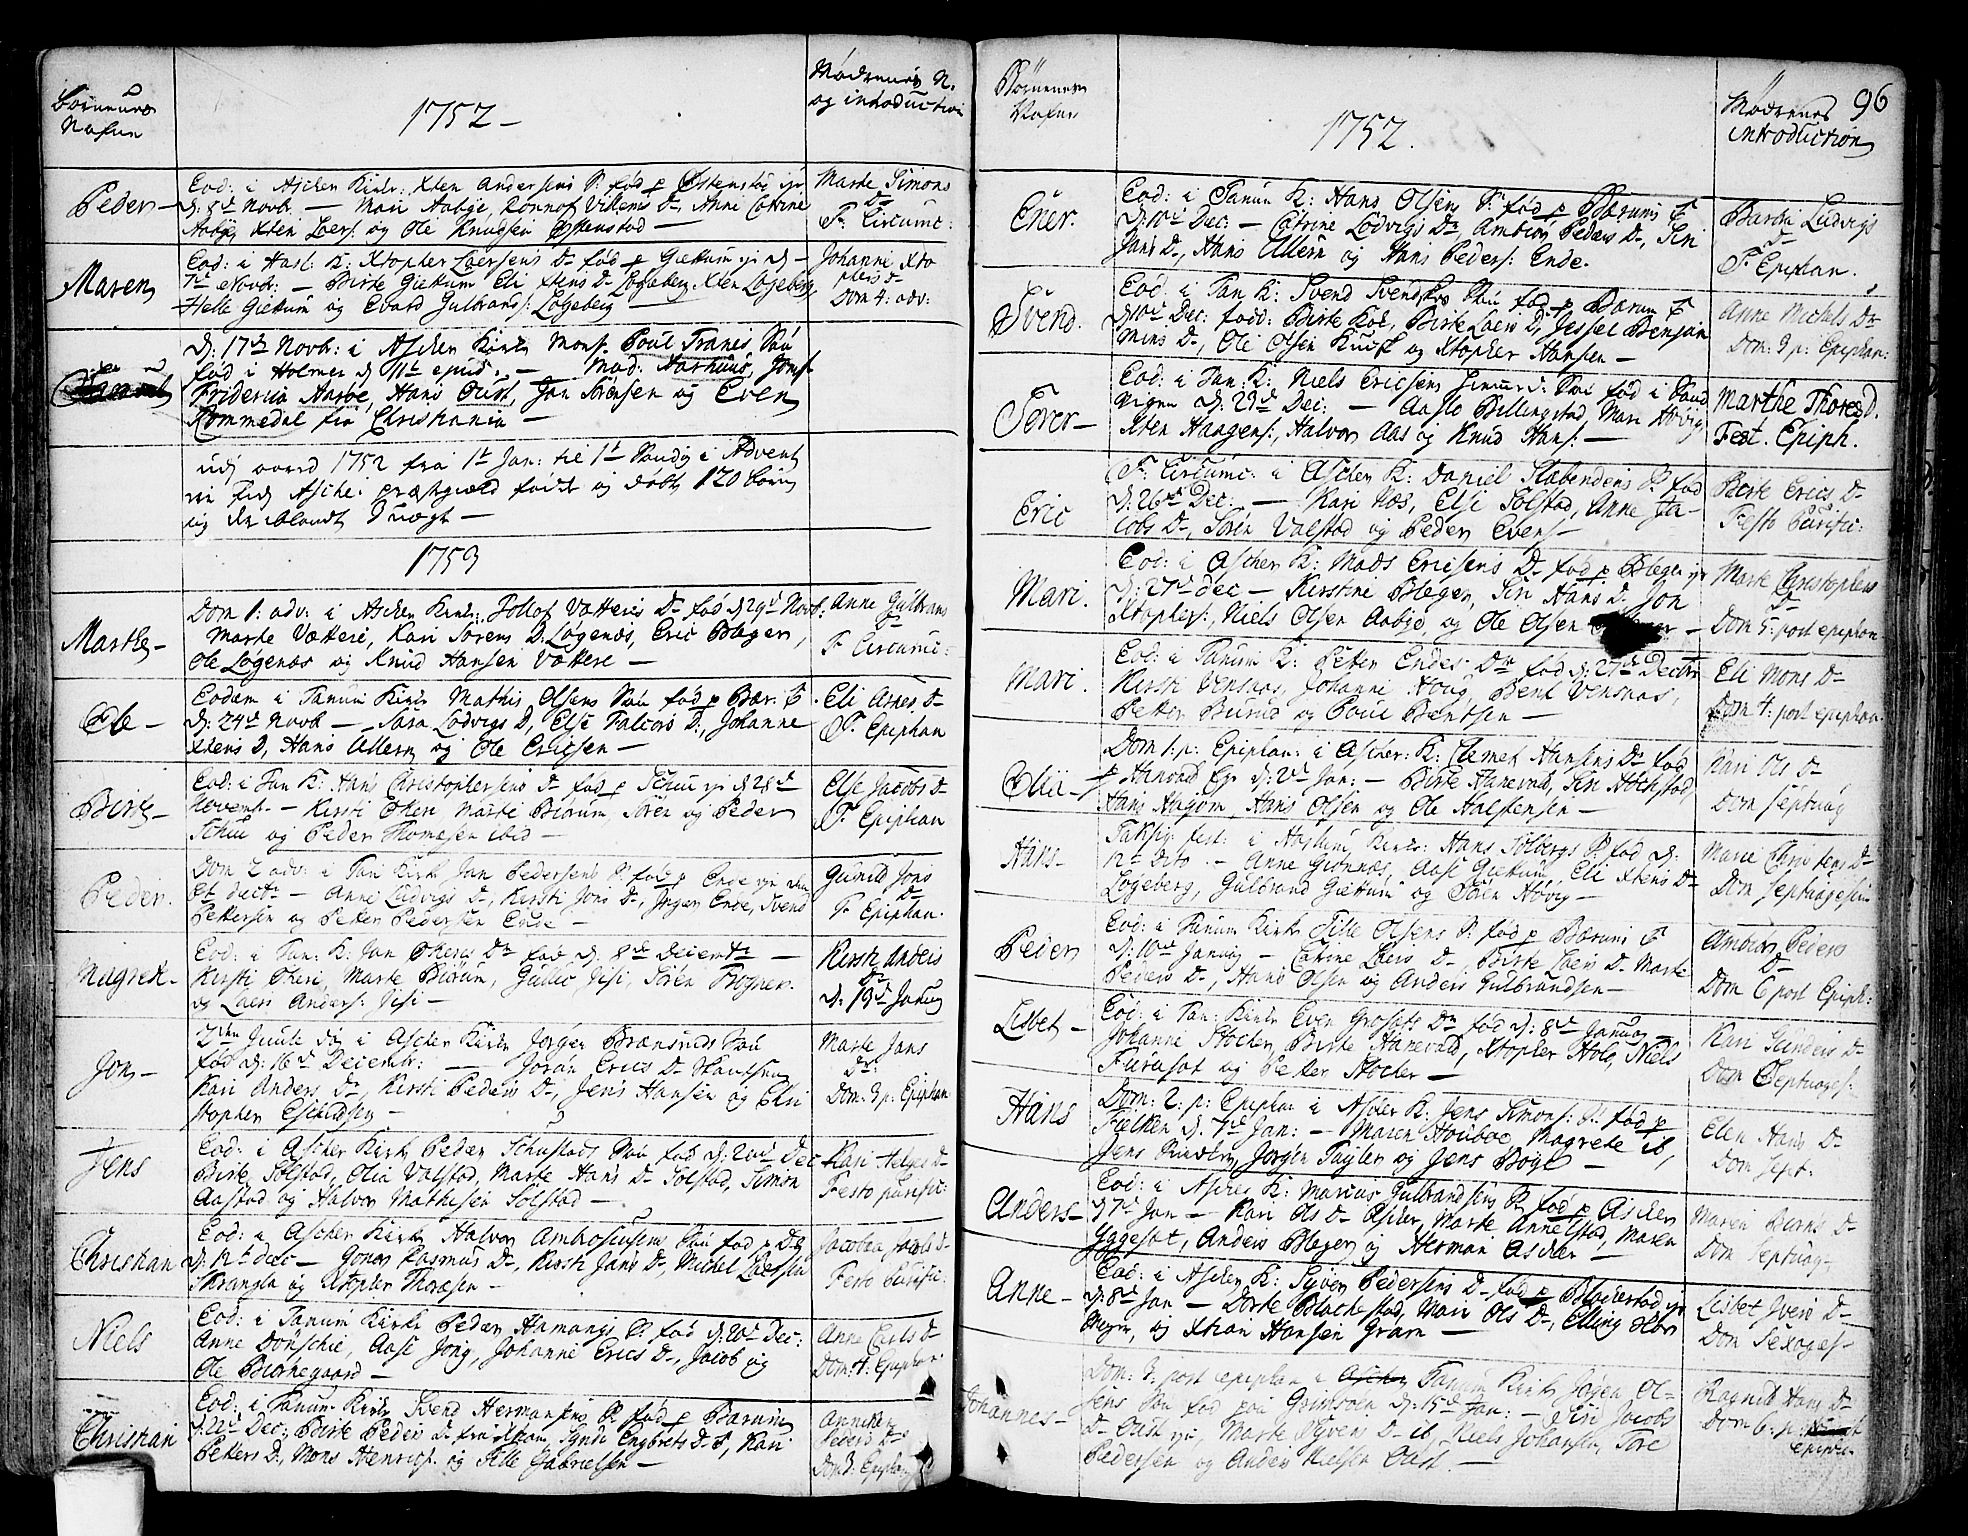 Børnenes
Nafne
1752 -
Mødrenes N.
og introduction
Peder -
Eod: i Ascher Kirke: Xten Andersens S: fød p Østenstad
d: 5d Novb. — Mari Aabye, Ronnof Villens D., Anne Catrine
Aabye, Xten Laers: og Ole Knudsen Østenstad —
Marte Simons
D-
F. Circumc:
Maren
Eod: i Hasl: K: Xtopher Laersens D- fød p Giettum
7de Novbr: — Birte Giettum Eli Xtens D- Løgeberg, Xten Løgeberg
Helle Giettum og Evard Gulbrands: Løgeberg —
Johanne Xto
phers D-
Dom 4: adv:
d: 17de Novb: i Ascher Kirke Mons. Poul Tranes Søn
fød i Holmen d 11te — Mad: Aarhuus, Jomf
Friderica Aasbe, Hans Oust, Jan Sørensen og Even
Rommedal fra Christiania —
udj aared 1752 fra 1t Jan: til 1t Søndag i Advent
er udj Asche: præstegield fødde og døbt 120 Børn
og der iblandt 9 uægt —
1753
Marthe -
Dom 1: adv: i Ascher Kirke: Tollof Vetteris D- fød d 29d Novb:
Marte Vettere, Kari Sørens D: Løgenæs, Eric Bleger,
Ole Løgenæs og Knud Hansen Vettere —
Anne Gulbrans
D-
F. Circumc:
Ole -
Eodem i Tanum Kirke Mathis Olsens Søn fød p Bær: V
d: 24d Novb — Sara Lodvigs D, Else Falcors D., Johanne
Xtens D, Hans Ullern og Ole Ericsen —
Eli Arnes D-
F. Epiphan
Birte -
Eod: i Tan K: Hans Christophersens D- fød p Schui d 28d
Novemb. — Kirsti Oheri Marte Biørum, Søren og Peder
Schui og Peder Thomesen ibid —
Else Jacobs D-
F. Epiphan
Peder.
Dom 2 adv: i Tan Kirk Jan Pedersens S: fød p Ende
— Anne Ludvigs D., Kirsti Jons D-, Jørgen Ende, Svend
Pettersen og Petter Pedersen Ende —
Gunild Jons
D-
F. Epiphan.
Magrete -
Eod: i Tan: K: Jan Oheris D- fød d. 8de Decembr —
Kirsti Oheri, Marte Biørum, Gullic Jisi, Søren Frogner
og Laers Anders: Jisi —
Kirsti Anders
D-
d: 19d Januarj
Jon -
2den Juule dag i Ascher Kirke Jørgen Brænneds Søn
fød d: 16d Decembr: — Joran Erics D-
Kari Anders D-, Kirsti Peders D-, Jens Hansen og Chri
stopher
Marte Jans
D-:
Dom. 3 p: Epiphan
Jens
Eod: i Ascher Kirk Peder Schustads Søn fød d: 20d Dec
Birte Solstad, Olia Valstad, Marte Hans D- Solstad, Simon
Aastad og Halvor Mathisen Solstad —
Kari Helges D-
Festo purific:
Christian
Eod: i Ascher Kirk Halvor Ambrosiusens Søn fød p
d: 12te dec — Gonor Rasmus D-, Kirsti Jans D-, Michel Laersen
Wrangla og Xtopher Thoresen —
Jacobea Joels D-
Festo Purific:
Niels
Eod: i Tanum Kirk Peder Hamangs S: fød d: 20d Dec:
Anne Dønschie, Aase Jong, Johanne Erics D-, Jacob og
Ole Biørnegaard —
Anne Carls D-
Dom: 4: Epiphan.
Christian
Eod: i Tanum Kirk Svend Hermansens S: fød p Bærum
d: 22d Dec: Birte Peders D- Gynde Engbrets D-, Kari
Petters D., Mons Henrics: og Tille Gabrielsen —
Anniken
Peders D-
Dom 3: Epiphan
Børnenes
Nafne
1752.
Mødrenes
introduction
96
Ener.
Eod: i Tanum K: Hans Olsens S: fød p Bærums V
d: 10d Dec: — Catrine Lodvigs D-, Ambior Peders D-, Siri
Jans D-, Hans Ullern og Hans Peders: Ende.
Barbra Ludvigs
D-
F. Epiphan.
Svend.
Eod: i Tan K: Svend Svendsens Søn fød p Bærum V
d: 10d Dec: fadd: Birte Kok, Birte Laers D, Jessel Benjan
mins D-, Ole Olsen Kudsk og Xtopher Hansen —
Anne Michels D-
Dom: 3 p: Epiphan:
Torer -
Eod: i Tan: K: Niels Ericsens Søn fød i Sand
vigen d: 29d Dec: — Aaslo Billingstad Mari Høvig
Xten Haagens:, Halvor Aas og Knud Hans: —
Marthe Thoresd.
Fest. Epiph.
Eric
F: Circumc: i Ascher K: Daniel Slabendens S: fød
d: 26d Dec: — Kari Næs, Else Solstad, Anne Ja-
cobs D-, Søren Valstad og Peder Evens —
Birte Erics D-
Festo Purific:
Mari.
Eod: i Ascher K: Mads Ericsens D- fød p Bleger
d: 27d dec — Kirstine Bleger, Siri Hans D. Jon
Xtophers:, Niels Olsen Aabye, og Ole Olsen —
Marte Christophers
D-
Dom 5: post epiphan
Mari.
Eod: i Tanum K: Petter Endes D- fød d. 27de Decbr
Kirsti Vensnas, Johanne Houg, Bent Vensnas,
Petter Burud og Poul Bentsen —
Eli Mons D-
Dom 4: post epiphan
Olia -
Dom 1: p: Epiphan: i Ascher: K: Clemet Hansens D- fød
p Hanevald d: 2d Jan: — Birte Hanevald, Siri Hochstad
Hans Hagom, Hans Olsen og Ole Halstensen —
Kari Ols D-
Dom Septuag
Hans -
Taksig: fest: i Haslum Kirk: Hans Solbergs S: fød d:
12te dito — Anne Grønnæs, Aase Giettum, Eli Xtens D-
Løgeberg, Gulbrand Giettum og Søren Høvig —
Marie Christens D-
Dom Septuagesim
Peder
Eod: i Tanum Kirk Tille Olsens S: fød p Bærums V
d: 10d Januarj — Catrine Laers D-, Birte Laers D- Marte
Peders D-, Hans Olsen og Anders Gulbrandsen —
Ambiør Peders
D-
Dom 6 post Epiph:
Lisbet -
Eod: i Tan: Kirk Even Grosets D- fød d: 8d Januarj
Johanne Stocker, Birte Hanevald, Xtopher Hole, Niels
Furuset og Petter Stocker —
Kari Gunders D-
Dom Septuages:
Hans
Dom: 2. p: Epiphan i Ascher K: Jens Simons: S: fød p
Fielken d. 7d Jan: — Maren Houboe, Magrete ib,
Jens Jørgen Tayler og Jens Bogt —
Elen Hans D-
Dom Sept:
Anders -
Eod: i Aschers K: Marcus Gulbrandsens S: fød p Ascher
d 7d Jan — Kari Ols D- Ascher, Marte Annestad, Maren
Yggeset, Anders Bleger og Herman Ascher —
Maren D-
Dom Septuag -
Anne -
Eod: i Ascher K: Syver Pedersens D- fød p Blackestad
d: 8d Jan — Dorte Blackestad, Mari Ols D-, Elling
og Xtian Hansen Gram —
Lisbet Jvers D-
Dom Sexages -
Johannes -
Dom: 3. post epiphan i Ascher Tanum Kirk Jørgen Ol-
sens Søn fød paa Grimsøen d. 15d Jan: — Siri Jacobs
D- Oust Marte Syvers D- ib, Niels Johansen, Tore
Pedersen og Anders Nielsen Oust. —
Ragnild Hans D-
Dom 6: p:
epiph.